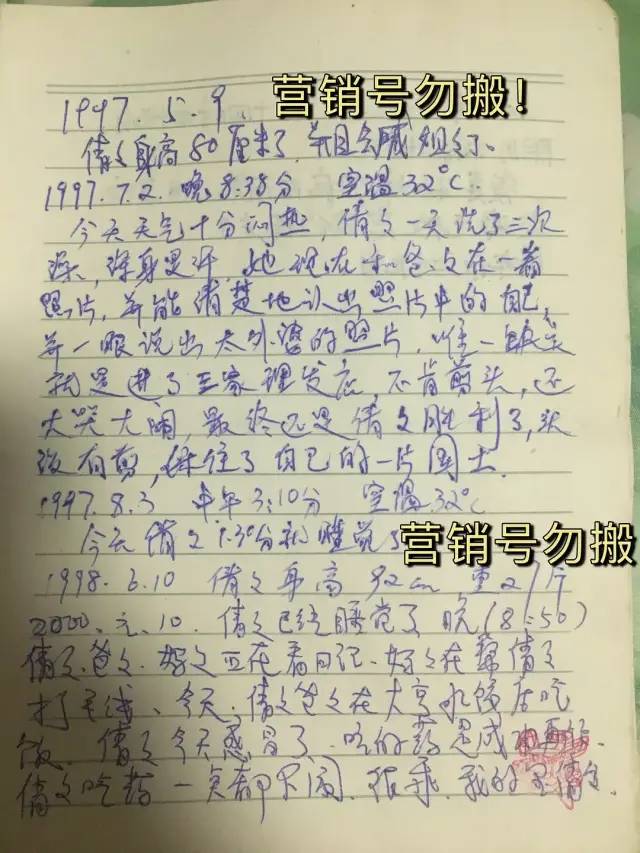 营销号勿搬!
1997.5.9.
倩文身高80厘米了、并且会喊姐了、
1997.7.2.晚8:38分 室温32°C.
今天天气十分闷热,倩文一天洗了三次
澡,浑身是汗,她现在和爸文在一看
照片,并能清楚地认出照片中的自己,
并一眼说出太外婆的照片,唯一缺点
就是进了三家理发店,不肯剪头,还
大哭大闹,最终还是倩文胜利了,头
没有剪,保住了自己的一片国土.
1997.8.3 中午3:10分 室温32°C
今天倩文1:30分就睡觉
营销号勿搬
1998.6.10 倩文身高92cm 重27斤
2000.元.10.倩文已经睡觉了 晚(8:50)
倩文、爸文、妈文正在看日记、妈文在帮倩文
打毛线、今天、倩文爸文在大亨水饺店吃
饭.倩文今天感冒了.吃的药是
倩文吃药一点都不闹.很乖.我的倩文